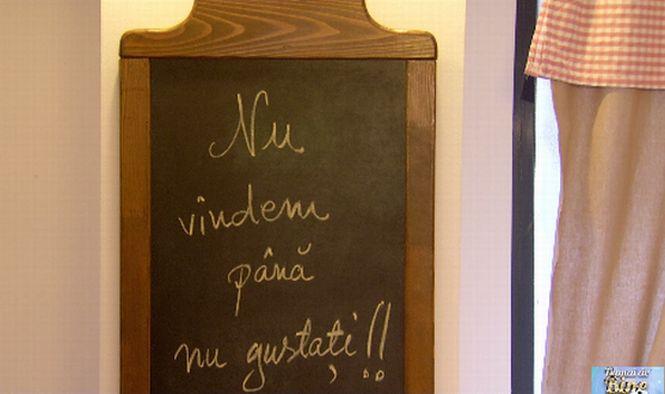 Nu
vindem
până
nu gustați!!